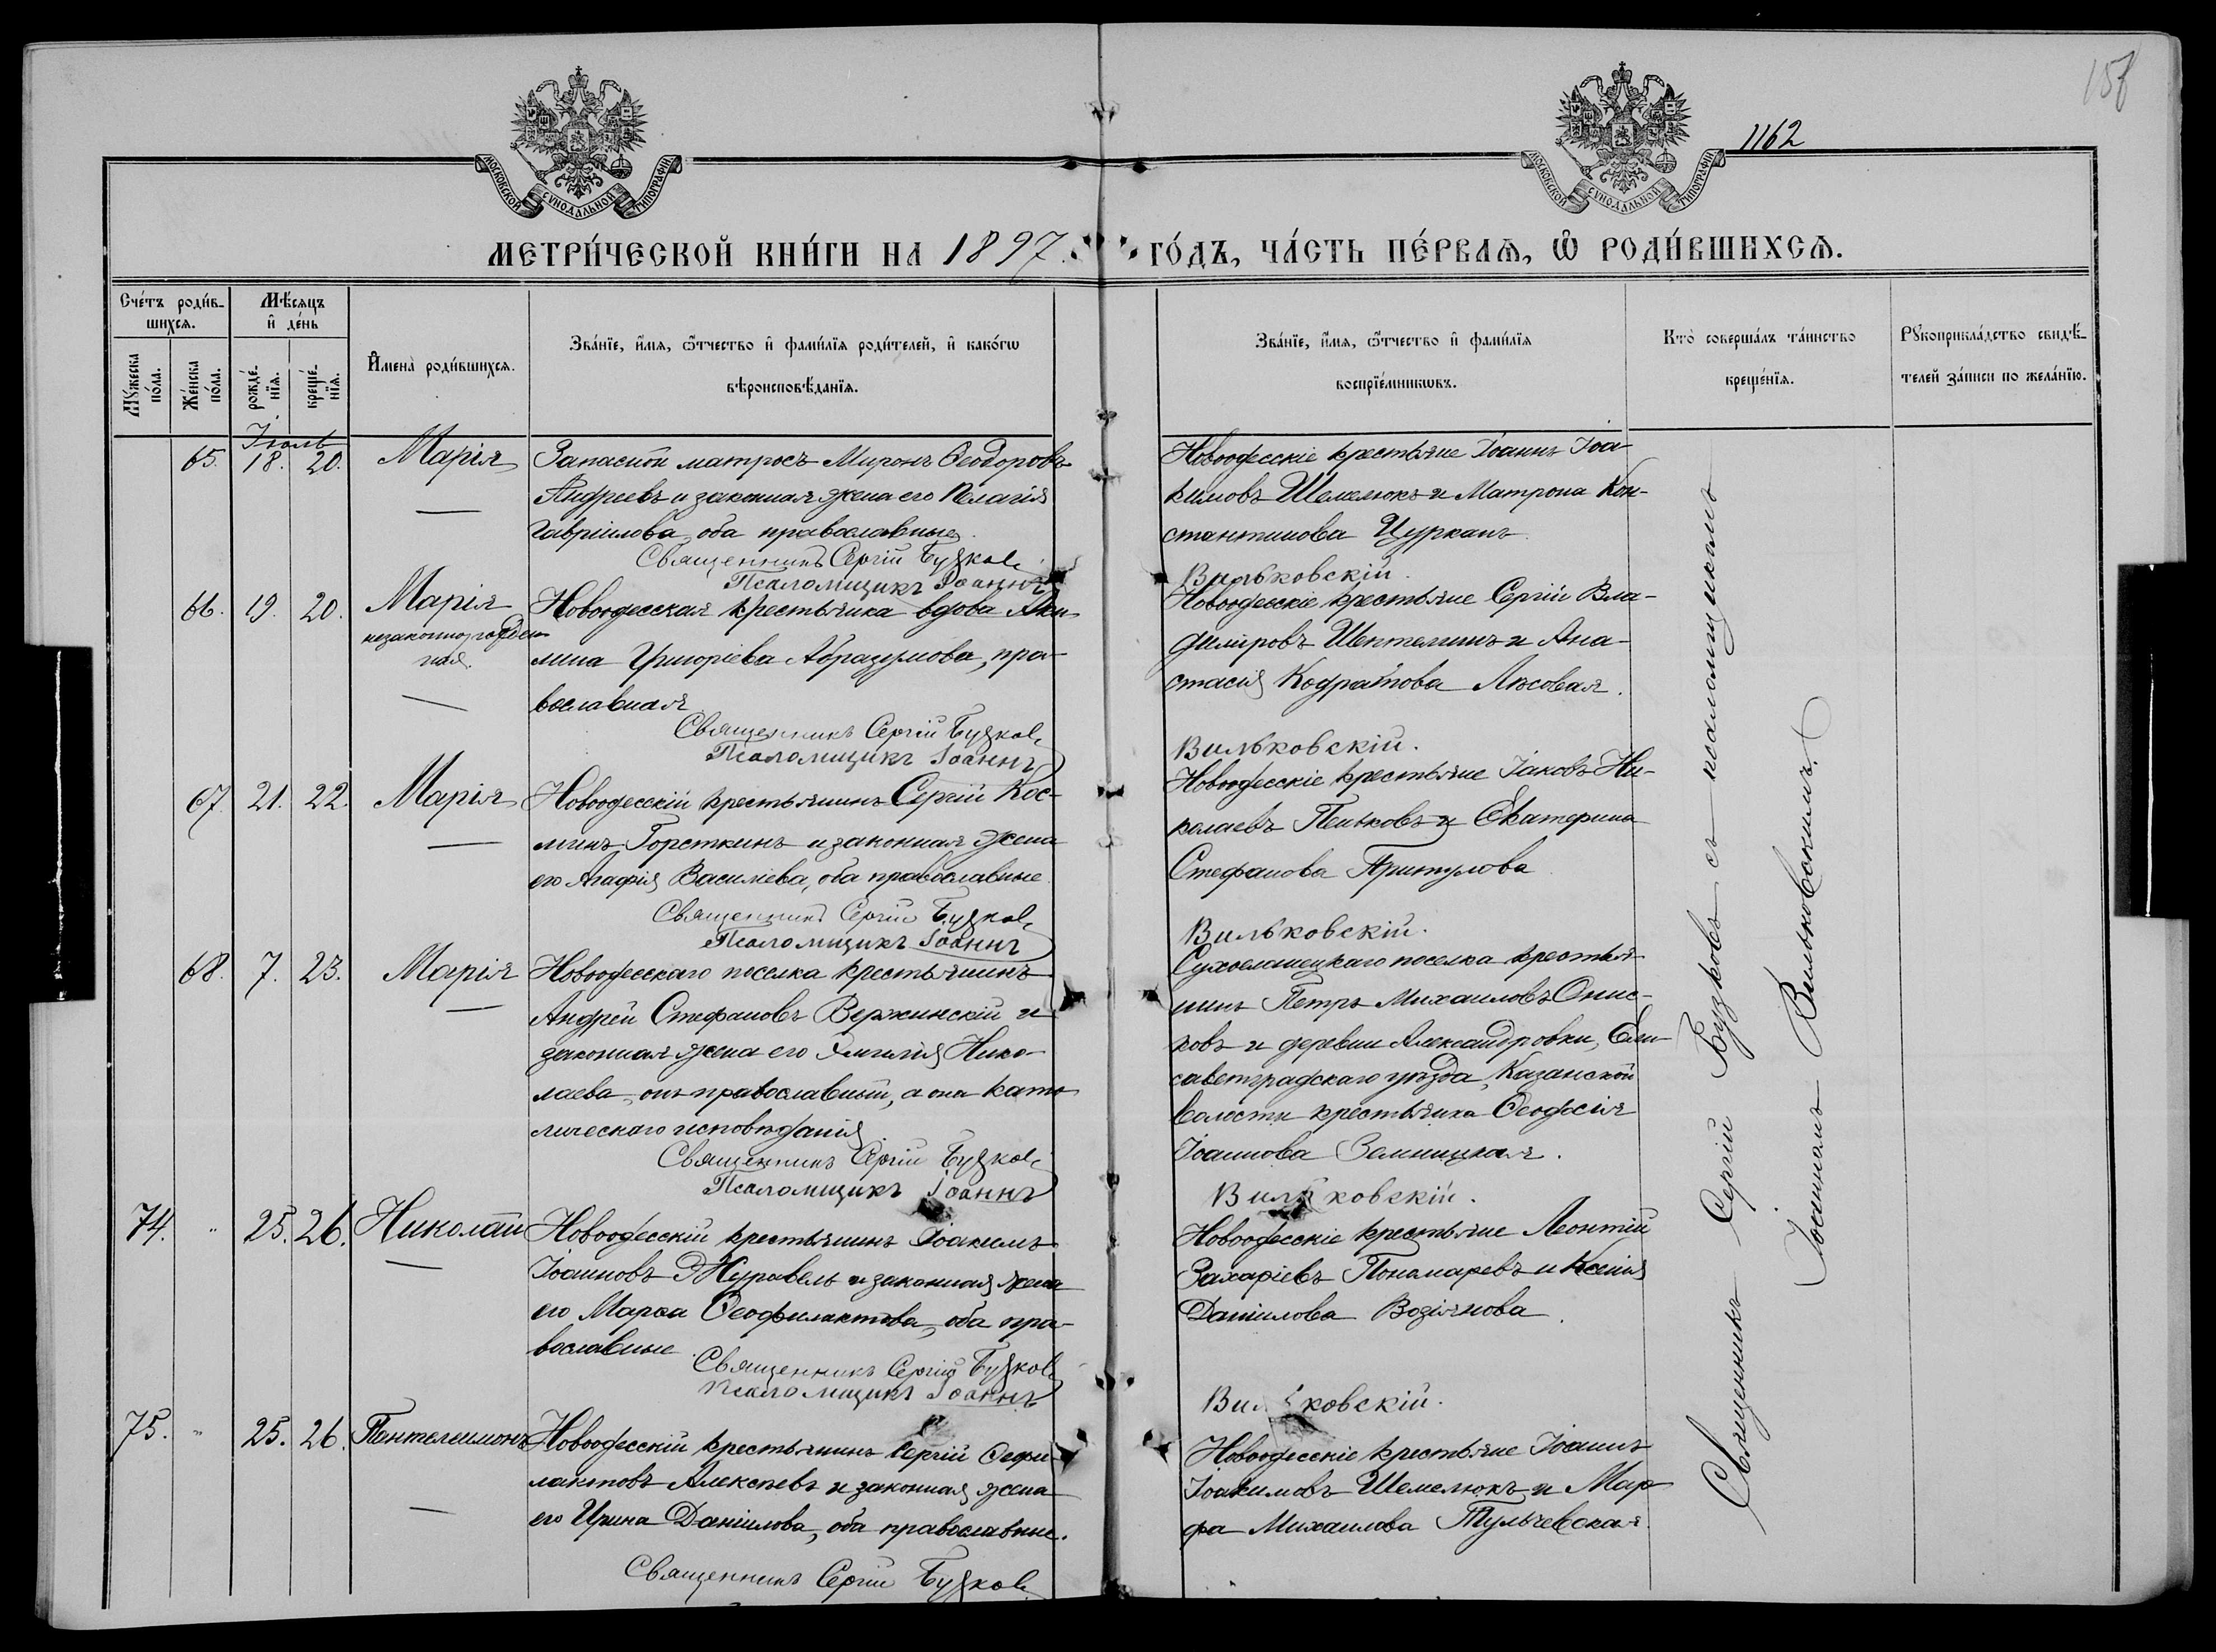 158
1162
МОСКОВСКОЙ СѴНОДАЛЬНОЙ ТИПОГРАФІИ
МОСКОВСКОЙ СѴНОДАЛЬНОЙ ТИПОГРАФІИ
МЕТРИ́ЧЕСКОЙ КНИ́ГИ НА 1897 ГО́ДЪ, ЧА́СТЬ ПЕ́РВАѦ, Ѡ҆ РОДИ́ВШИХСѦ.
Сче́тъ роди́в-
шихсѧ.
Мѣ́сѧцъ
и҆ де́нь
Мꙋ́жеска
по́ла.
Же́нска
по́ла.
рожде́-
нїѧ.
креще́-
нїѧ.
И҆мена̀ роди́вшихсѧ.
Зва́нїе, и҆́мѧ, ѻ҆́тчество и҆ фами́лїѧ роди́телей, и҆ како́гѡ
вѣроисповѣ́данїѧ.
Зва́нїе, и҆́мѧ, ѻ҆́тчество и҆ фами́лїѧ
воспрїе́мникѡвъ.
Кто̀ соверша́лъ та́инство
креще́нїѧ.
Рꙋкоприкла́дство свидѣ́-
телей за́писи по жела́нїю.
Іюль
65. 18. 20. Марія
Запасный матросъ Миронъ Ѳеодоровъ
Андреевъ и законная жена его Пелагія
Гавріилова, оба православные.
Священникъ Сергій Бузков
Псаломщикъ Іоаннъ
Новоодесскіе крестьяне Іоаннъ Іоа-
кимовъ Шемелюкъ и Матрона Кон-
стантинова Цурканъ.
Вильковскій.
66. 19. 20. Марія
незаконнорожден-
ная.
Новоодесская крестьянка вдова Аки-
лина Григоріева Абразумова, пра-
вославная
Священникъ Сергій Бузков
Псаломщикъ Іоаннъ
Новоодесскіе крестьяне Сергій Вла-
димировъ Шептелинъ и Ана-
стасія Кодратова Лясовая.
Вильковскій.
67. 21. 22. Марія
Новоодесскій крестьянинъ Сергій Кос-
минъ Горсткинъ и законная жена
его Агафія Василіева, оба православные
Священникъ Сергій Бузков
Псаломщикъ Іоаннъ
Новоодесскіе крестьяне Іаковъ Ни-
колаевъ Пеньковъ и Екатерина
Стефанова Притулова
Вильковскій.
68. 7. 23. Марія
Новоодесскаго поселка крестьянинъ
Андрей Стефановъ Вержинскій и
законная жена его Эмилія Нико-
лаева, онъ православный, а она като-
лическаго исповѣданія.
Священникъ Сергій Бузков
Псаломщикъ Іоаннъ
Сухоеланецкаго поселка крестья-
нинъ Петръ Михаиловъ Онис-
ковъ и деревни Александровки, Ели-
саветградскаго уѣзда, Казанской
волости крестьянка Ѳеодосія
Іоаннова Земницкая.
Вильковскій.
74. " 25. 26. Николай
Новоодесскій крестьянинъ Іоакимъ
Іоанновъ Журавель и законная жена
его Марѳа Ѳеофилактова, оба пра-
вославные.
Священникъ Сергій Бузков
Псаломщикъ Іоаннъ
Новоодесскіе крестьяне Леонтій
Захаріевъ Пономаревъ и Ксенія
Даніилова Возіянова.
Вильковскій.
75. " 25. 26. Пантелеимонъ
Новоодесскій крестьянинъ Сергій Ѳеофи-
лактовъ Алексѣевъ и законная жена
его Ирина Даніилова, оба православные.
Священникъ Сергій Бузков
Новоодесскіе крестьяне Іоаннъ
Іоакимовъ Шемелюкъ и Мар-
фа Михаилова Тульчевская.
Священникъ Сергій Бузковъ съ псаломщикомъ
Іоанномъ Вильковскимъ.